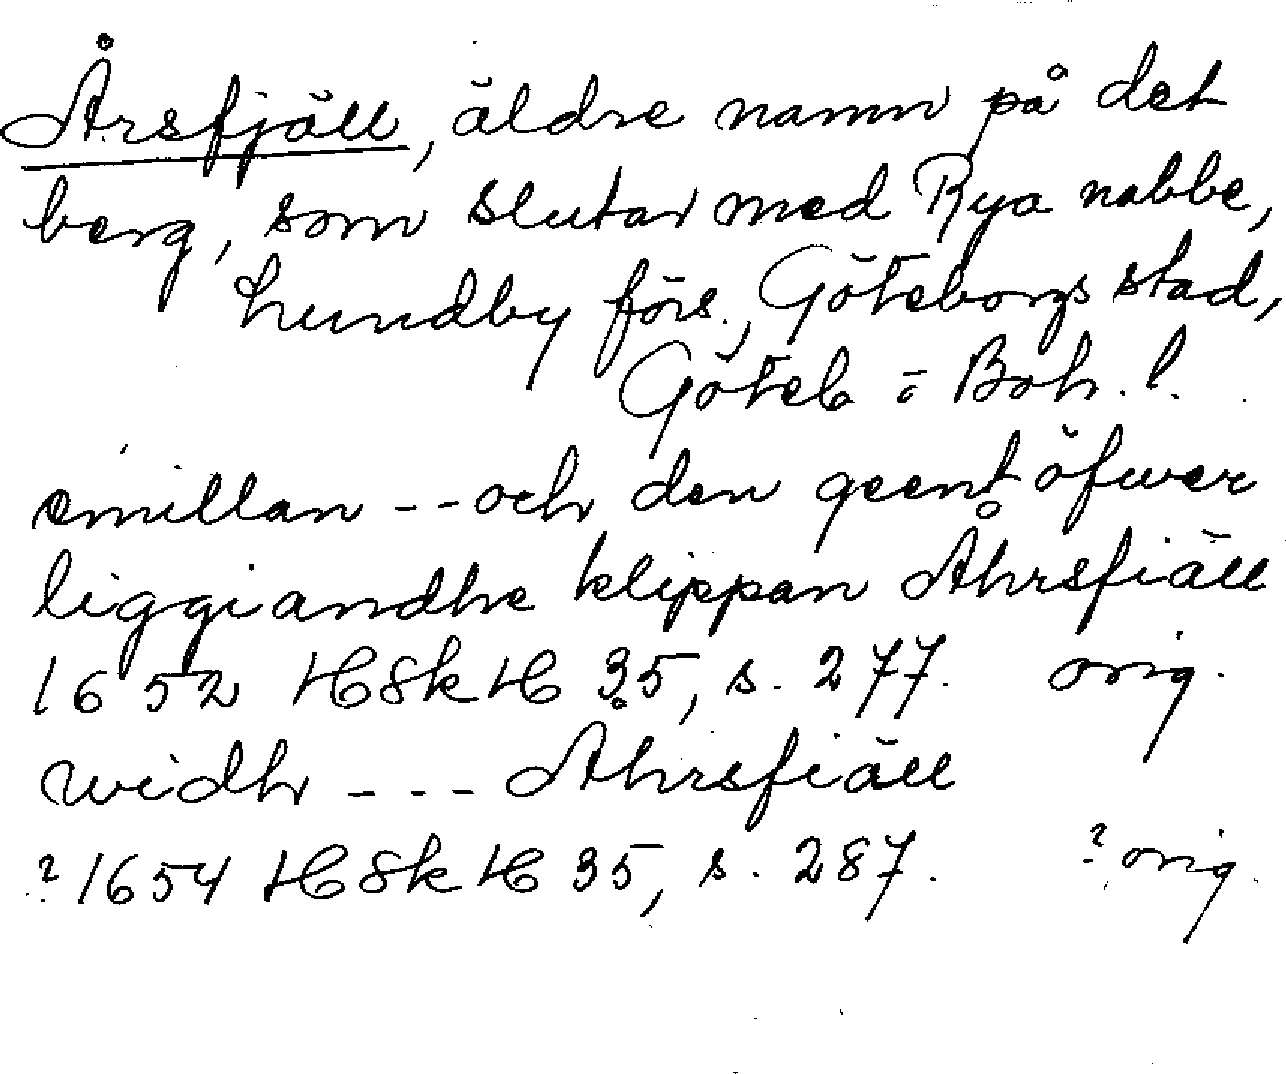 Årsfjäll, äldre namn på det
berg, som slutar med Rya nabbe,
Lundby förs., Göteborgs stad,
Göteb o Boh. l.
emillan -- och den geent öfwer
liggiandhe klippan Åhrsfiäll
1652 HSkH 35, s. 277. orig.
widh --- Ahrsfiäll
?1654 HSkH 35, s. 287. ? orig.